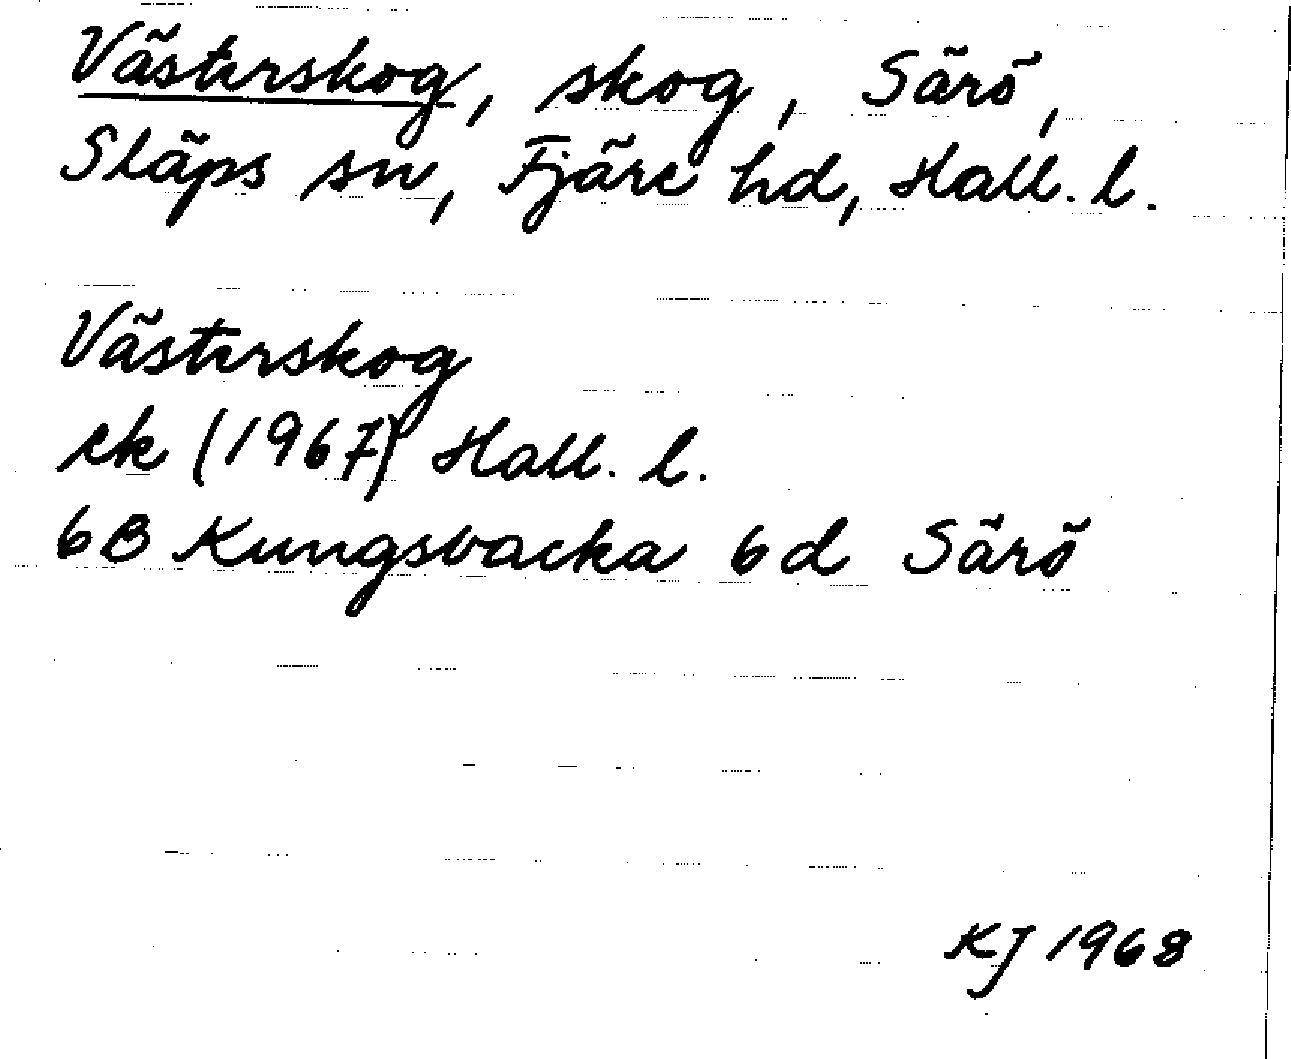 Västerskog, skog, Särö,
Släps sn, Fjäre hd, Hall. l.
Västerskog
ek (1967) Hall. l.
6B Kungsbacka 6d Särö
KJ 1968